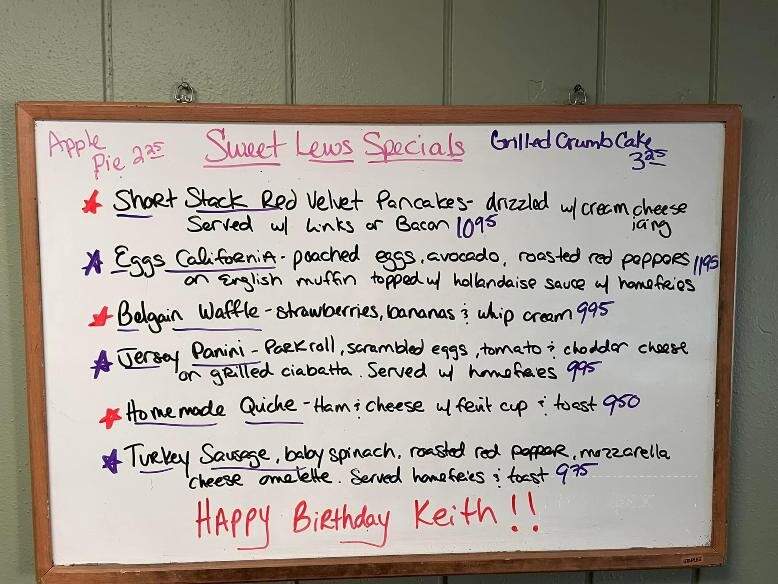 Apple Pie 2.25
Sweet Lews Specials
Grilled Crumb Cake 3.25
Short Stack Red Velvet Pancakes - drizzled w/ cream cheese icing
Served w/ Links or Bacon 10.95
Eggs California - poached eggs, avocado, roasted red peppers 11.95
on English muffin topped w/ hollandaise sauce w/ homefries
Belgain Waffle - strawberries, bananas & whip cream 9.95
Jersey Panini - Porkroll, scrambled eggs, tomato & cheddar cheese
on grilled ciabatta. Served w/ homefries 9.95
Homemade Quiche - Ham & cheese w/ fruit cup & toast 9.50
Turkey Sausage, baby spinach, roasted red pepper, mozzarella
cheese omelette. Served homefries & toast 9.75
HAPPY BIRTHDAY Keith!!